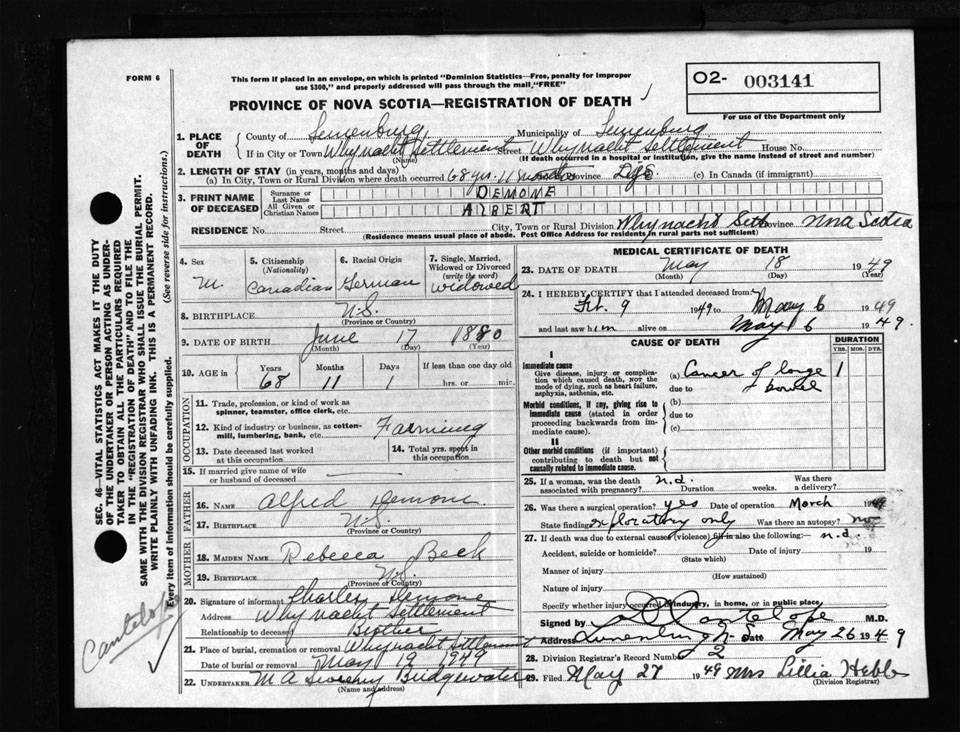 FORM 6
This form if placed in an envelope, on which is printed "Dominion Statistics—Free, penalty for improper
use $300," and properly addressed will pass through the mail, "FREE"
PROVINCE OF NOVA SCOTIA—REGISTRATION OF DEATH
O2- 003141
For use of the Department only
1. PLACE OF DEATH { County of Lunenburg, Municipality of Lunenburg
If in City or Town Whynacht Settlement Street Whynacht Settlement House No.
(Name) (If death occurred in a hospital or institution, give the name instead of street and number)
2. LENGTH OF STAY (in years, months and days)
(a) In City, Town or Rural Division where death occurred 68 yrs. 11 months Province Life (c) In Canada (if immigrant)
3. PRINT NAME OF DECEASED { Surname or Last Name DEMONE
All Given or Christian Names ALBERT
RESIDENCE No. Street City, Town or Rural Division Whynacht Sett Province Nova Scotia
(Residence means usual place of abode. Post Office Address for residents in rural parts not sufficient)
4. Sex M.
5. Citizenship (Nationality) Canadian
6. Racial Origin German
7. Single, Married, Widowed or Divorced (write the word) widowed
8. BIRTHPLACE N.S.
(Province or Country)
9. DATE OF BIRTH June 17 1880
(Month) (Day) (Year)
10. AGE in { Years 68 Months 11 Days 1 If less than one day old
hrs. or min.
OCCUPATION
11. Trade, profession, or kind of work as
spinner, teamster, office clerk, etc.
12. Kind of industry or business, as cotton-
mill, lumbering, bank, etc. Farming
13. Date deceased last worked
at this occupation
14. Total yrs. spent in
this occupation
15. If married give name of wife
or husband of deceased
FATHER
16. NAME Alfred Demone
17. BIRTHPLACE N.S.
(Province or Country)
MOTHER
18. MAIDEN NAME Rebecca Beck
19. BIRTHPLACE N.S.
(Province or Country)
20. Signature of informant Charles Demone
Address Whynacht Settlement
Relationship to deceased Brother
21. Place of burial, cremation or removal Whynacht Settlement
Date of burial or removal May 19, 1949
22. UNDERTAKER M A Sweeny Bridgewater
(Name and address)
MEDICAL CERTIFICATE OF DEATH
23. DATE OF DEATH May 18 1949
(Month) (Day) (Year)
24. I HEREBY CERTIFY that I attended deceased from:
Feb. 9 1949 to May 6 1949
and last saw him alive on May 6 1949.
CAUSE OF DEATH
DURATION
YRS. MOS. DYS.
I
Immediate cause
Give disease, injury or complica-
tion which caused death, not the
mode of dying, such as heart failure,
asphyxia, asthenia, etc.
(a) Cancer of large 1
due to bowel
Morbid conditions, if any, giving rise to
immediate cause (stated in order
proceeding backwards from im-
mediate cause).
(b)
due to
(c)
II
Other morbid conditions (if important)
contributing to death but not
causally related to immediate cause.
25. If a woman, was the death
associated with pregnancy? n.d. Duration weeks. Was there
a delivery?
26. Was there a surgical operation? yes Date of operation March 1949
State finding exploratory only Was there an autopsy? no
27. If death was due to external causes (violence) fill in also the following:— n.d.
Accident, suicide or homicide? Date of injury 19
(State which)
Manner of injury
(How sustained)
Nature of injury
Specify whether injury occurred in industry, in home, or in public place
Signed by Cantelope M.D.
Address Lunenburg N.S. Date May 26 1949
28. Division Registrar's Record Number 2
29. Filed May 27 1949 Mrs Lillia Hebb
(Division Registrar)
SEC. 46—VITAL STATISTICS ACT MAKES IT THE DUTY
OF THE UNDERTAKER OR PERSON ACTING AS UNDER-
TAKER TO OBTAIN ALL THE PARTICULARS REQUIRED
IN THE "REGISTRATION OF DEATH" AND TO FILE THE
SAME WITH THE DIVISION REGISTRAR WHO SHALL ISSUE THE BURIAL PERMIT.
WRITE PLAINLY WITH UNFADING INK. THIS IS A PERMANENT RECORD.
Every item of information should be carefully supplied.
(See reverse side for instructions.)
Cantelope